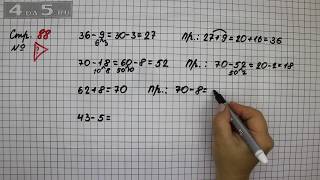 4DA5.RU
Стр. 88
№
36-9=30-3=27 Пр.: 27+9=20+16=36
6 3
70-18=60-8=52 Пр.: 70-52=20-2=18
10 8 50 10 50 2
62+8=70 Пр.: 70-8=
43-5=